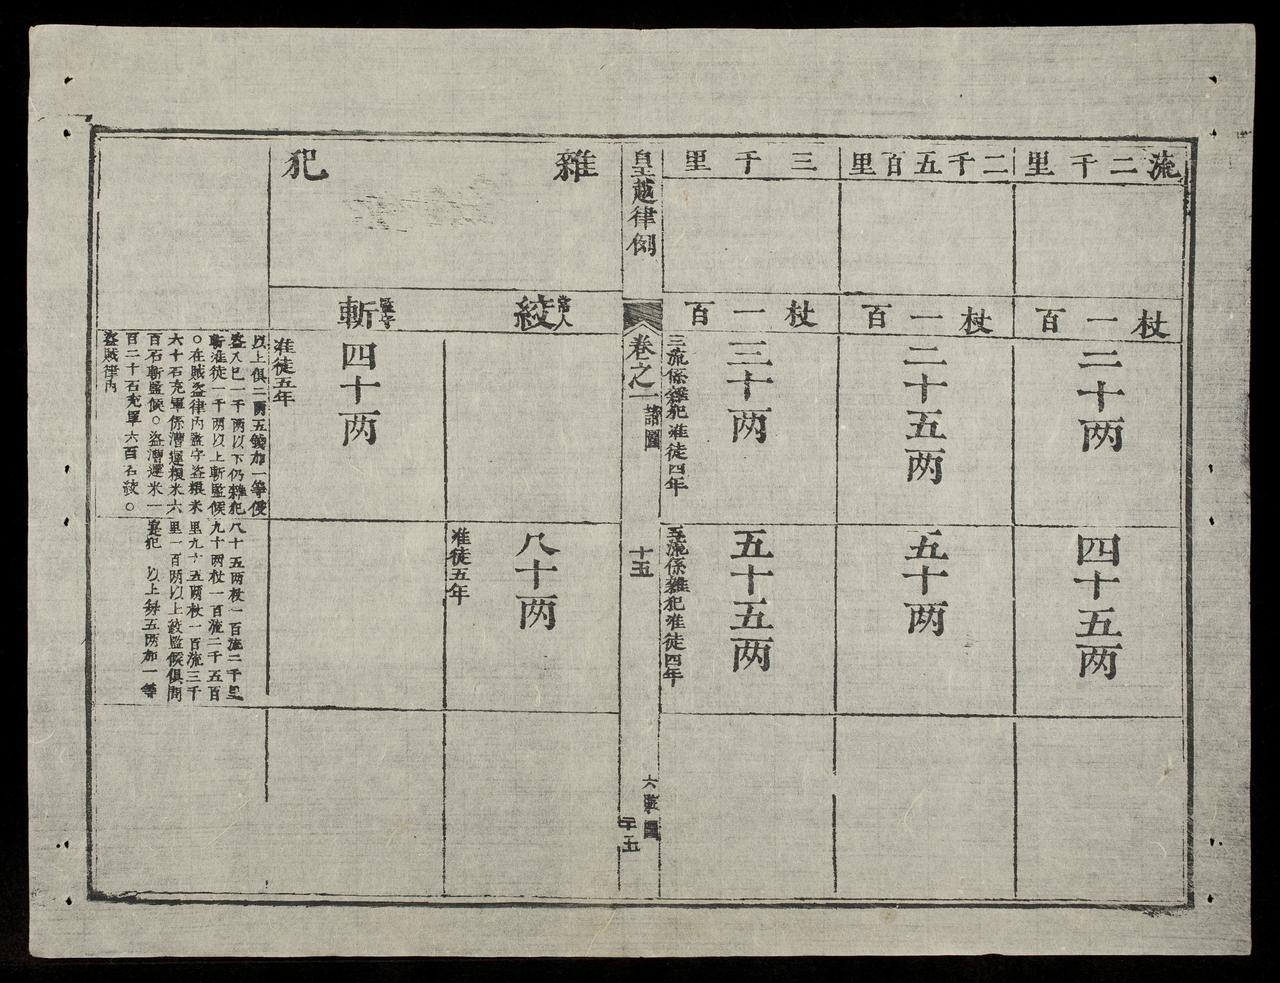 流二千里
二千五百里
三千里
杖一百
杖一百
杖一百
二十两
二十五两
三十两
三流係雜犯准徒四年
四十五两
五十两
五十五两
五流係雜犯准徒四年
皇越律例
卷之一
諸圖
十五
六
圖
二十五
雜犯
常人
絞
監守
斬
四十两
准徒五年
八十两
准徒五年
以上俱二两五錢加一等侵
盜入己一千两以下仍雜犯
斬准徒一千两以上斬監候
○在賊盜律內監守盜粮米
六十石充軍係漕運粮米六
百石斬監候○盜漕運米一
百二十石充軍六百石絞○
盜賊律內
八十五两杖一百流二千里
九十两杖一百流二千五百
里九十五两杖一百流三千
里一百两以上絞監候俱問
實犯 以上每五两加一等